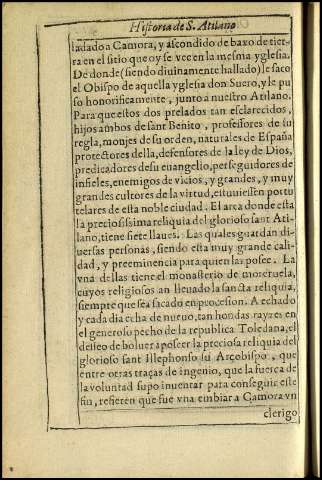 Historia de S. Atilano
ladado a Çamora, y ascondido de baxo de tier-
ra en el sitio que oy se vee en la mesma yglesia.
De donde (siendo diuinamente hallado) le saco
el Obispo de aquella yglesia don Suero, y le pu
so honorificamente, junto a nuestro Atilano.
Para que estos dos prelados tan esclarecidos,
hijos ambos de sant Benito, professores de su
regla, monjes de su orden, naturales de España
protectores della, defensores de la ley de Dios,
predicadores de su euangelio, perseguidores de
infieles, enemigos de vicios, y grandes, y muy
grandes cultores de la virtud, estuuiessen por tu
telares de esta noble ciudad. El arca donde esta
la preciosissima reliquia del glorioso sant Ati-
lano, tiene siete llaues. Las quales guardan di-
uersas personas, siendo esta muy grande cali-
dad, y preeminencia para quien las posee. La
vna dellas tiene el monasterio de moreruela,
cuyos religiosos an lleuado la sancta reliquia,
siempre que sea sacado en procesion. A echado
y cada dia echa de nueuo, tan hondas rayzes en
el generoso pecho de la republica Toledana, el
desseo de boluer a posser la preciosa reliquia del
glorioso sant Illephonso su Arçobispo, que
entre otras traças de ingenio, que la fuerça de
la voluntad supo inuentar para conseguir este
fin, refieren que fue vna embiar a Çamora vn
clerigo